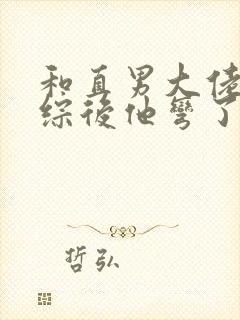 和直男大佬
综後他彎了
哲弘